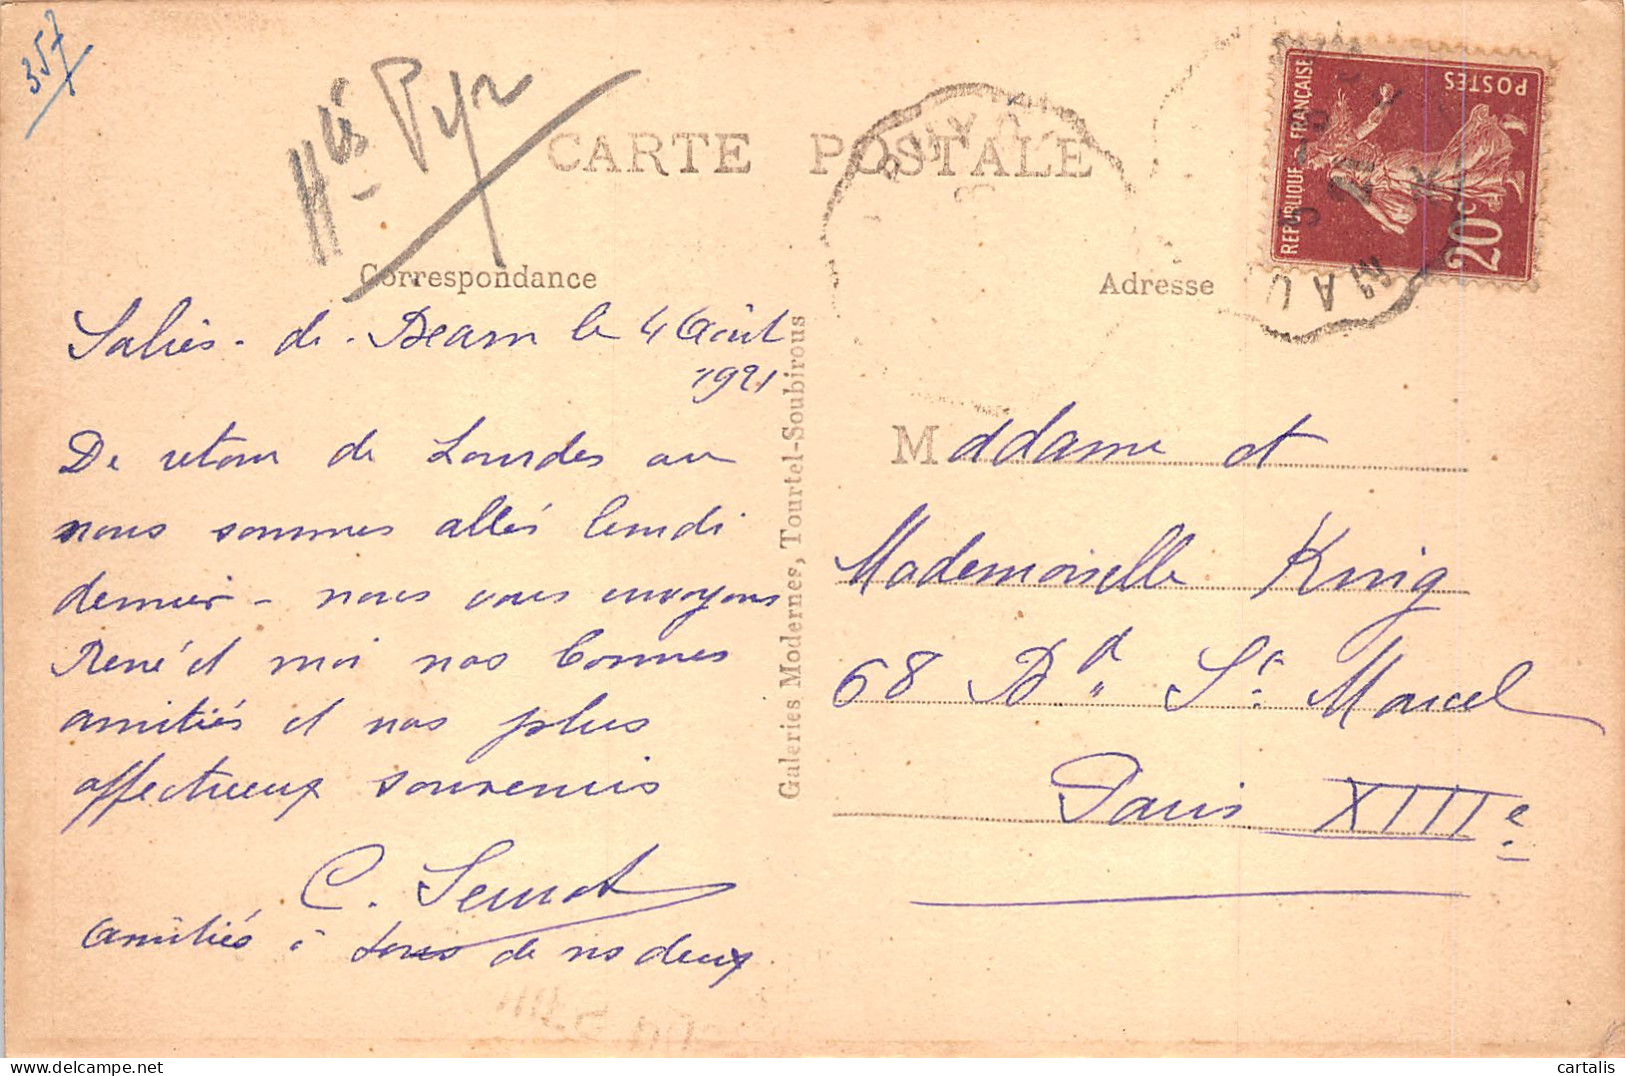 357
Htes Pyr
CARTE POSTALE
Correspondance
Adresse
REPUBLIQUE FRANÇAISE
POSTES
20c
Salies-de-Bearn le 4 Août
1921
De retour de Lourdes ou
nous sommes allés lundi
dernier - nous vous envoyons
René et moi nos bonnes
amitiés et nos plus
affectueux souvenirs
C.
amitiés à tous de ns deux
Galeries Modernes, Tourtel-Soubirous
Maddame et
Mademoiselle King
68 Bd St Marcel
Paris XIIIe
cartalis